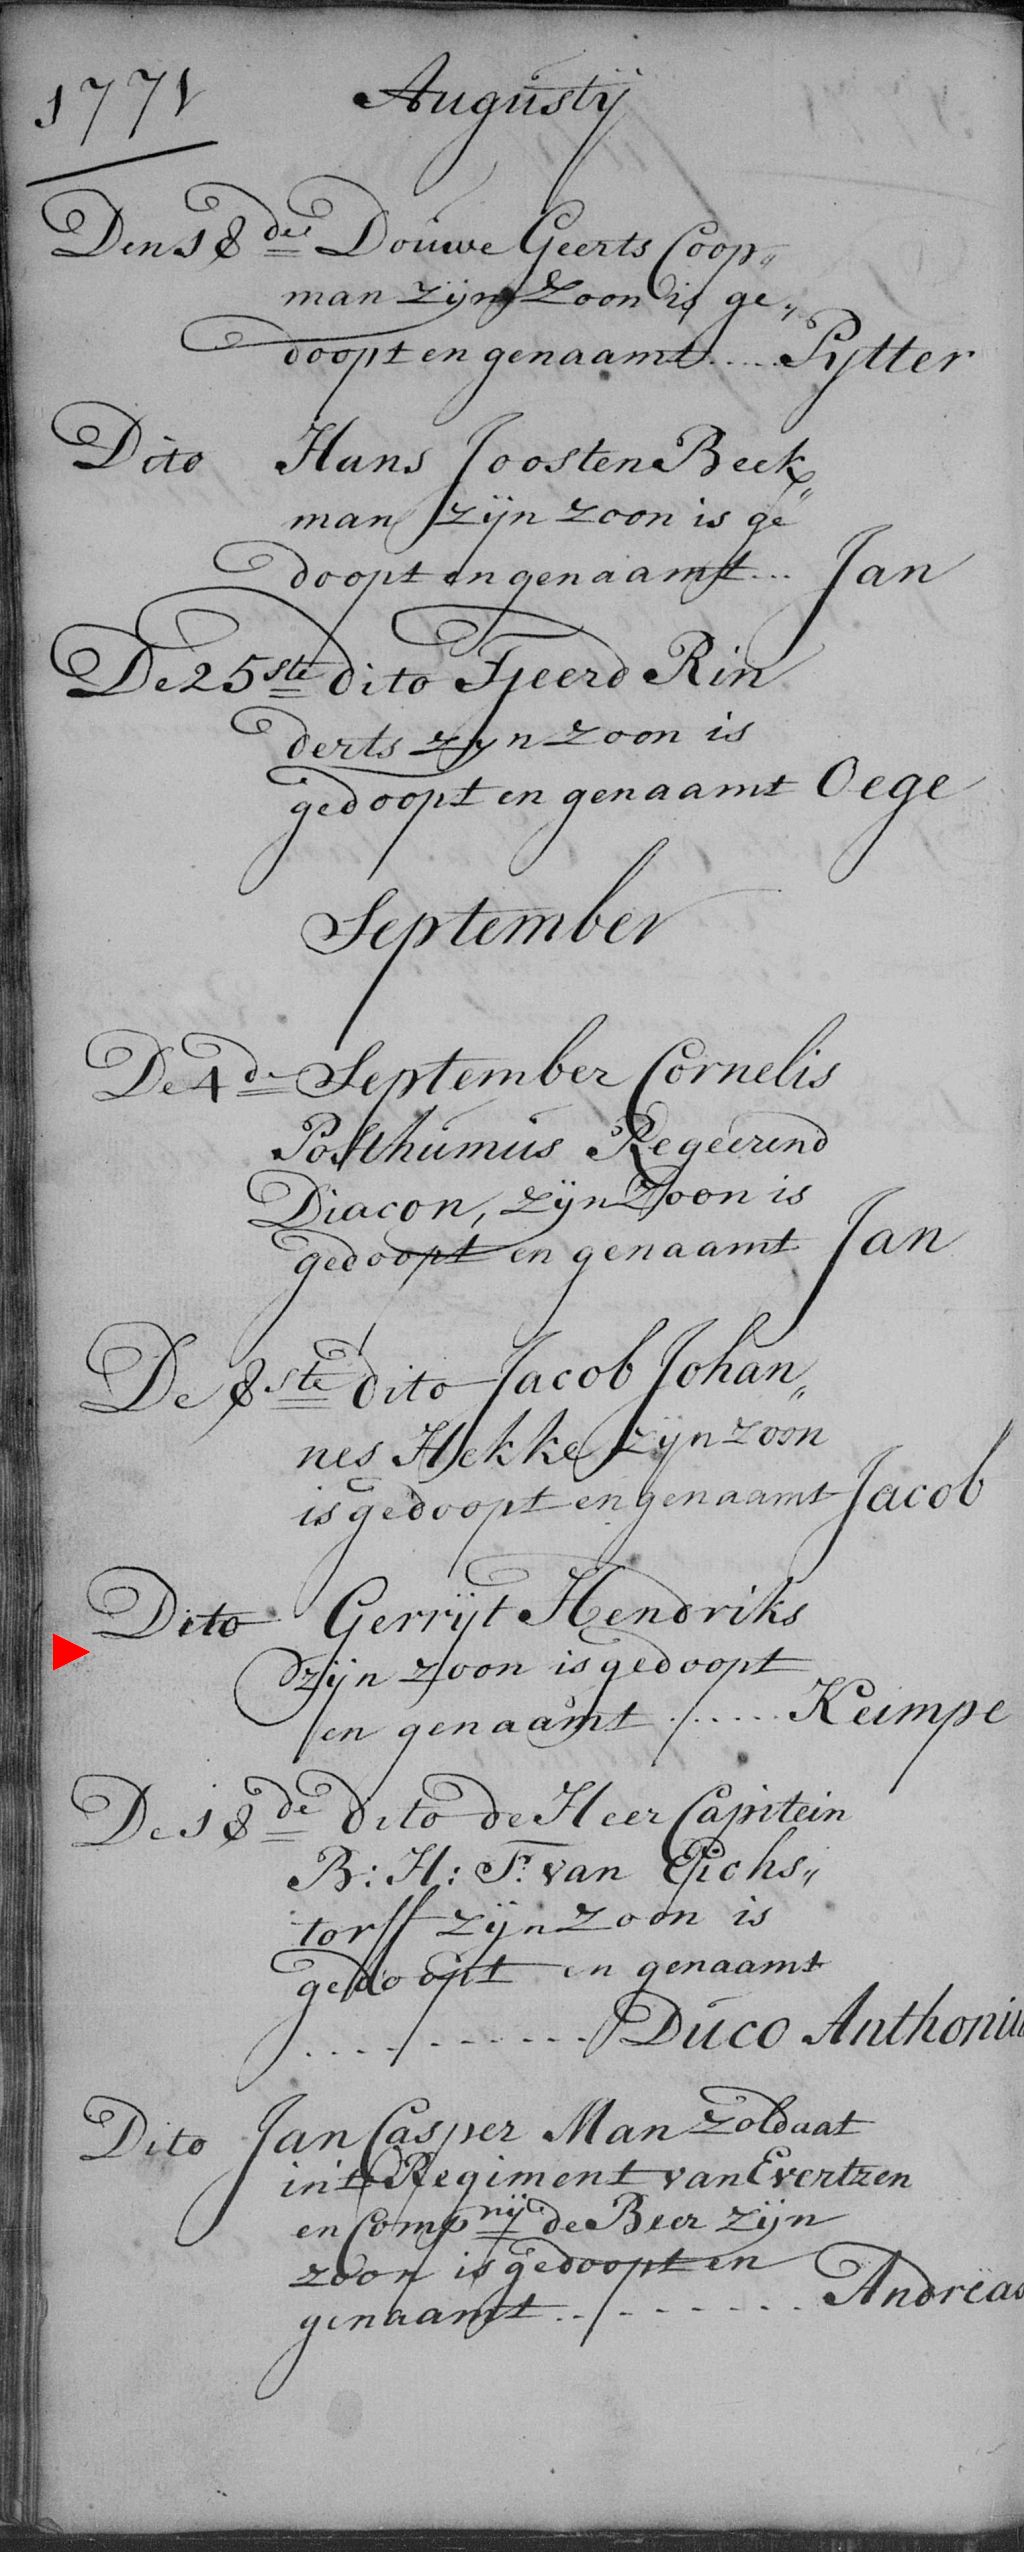 1771 Augustij
Den 18de Douwe Geerts Coop„
man zijn Zoon is ge„
doopt en genaamt..... Pytter
Dito Hans Joosten Beek„
man zijn zoon is ge„
doopt en genaamt... Jan
De 25ste dito Tjeerd Rin
derts zyn zoon is
gedoopt en genaamt Oege
September
De 4de September Cornelis
Posthumus Regeerend
Diacon, zijn Zoon is
gedoopt en genaamt Jan
De 8ste dito Jacob Johan„
nes Hekke zijn zoon
is gedoopt en genaamt Jacob
Dito Gerrijt Hendriks
zijn zoon is gedoopt
en genaamt ...... Keimpe
De 18de dito de Heer Capitein
B: H: F: van Eichs„
torff zijn zoon is
gedoopt en genaamt
.......... Duco Anthonius
Dito Jan Casper Man zoldaat
in't Regiment van Evertzen
en Compnij de Beer zijn
zoon is gedoopt en
genaamt.......... Andreas